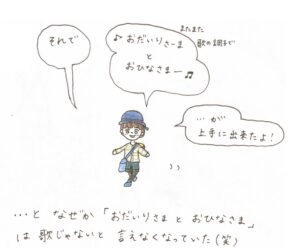 それで
またまた
歌の調子で
♪おだいりさーま
と
おひなさまー♫
…が
上手に出来たよ!
…と なぜか「おだいりさま と おひなさま」
は 歌じゃないと 言えなくなっていた(笑)